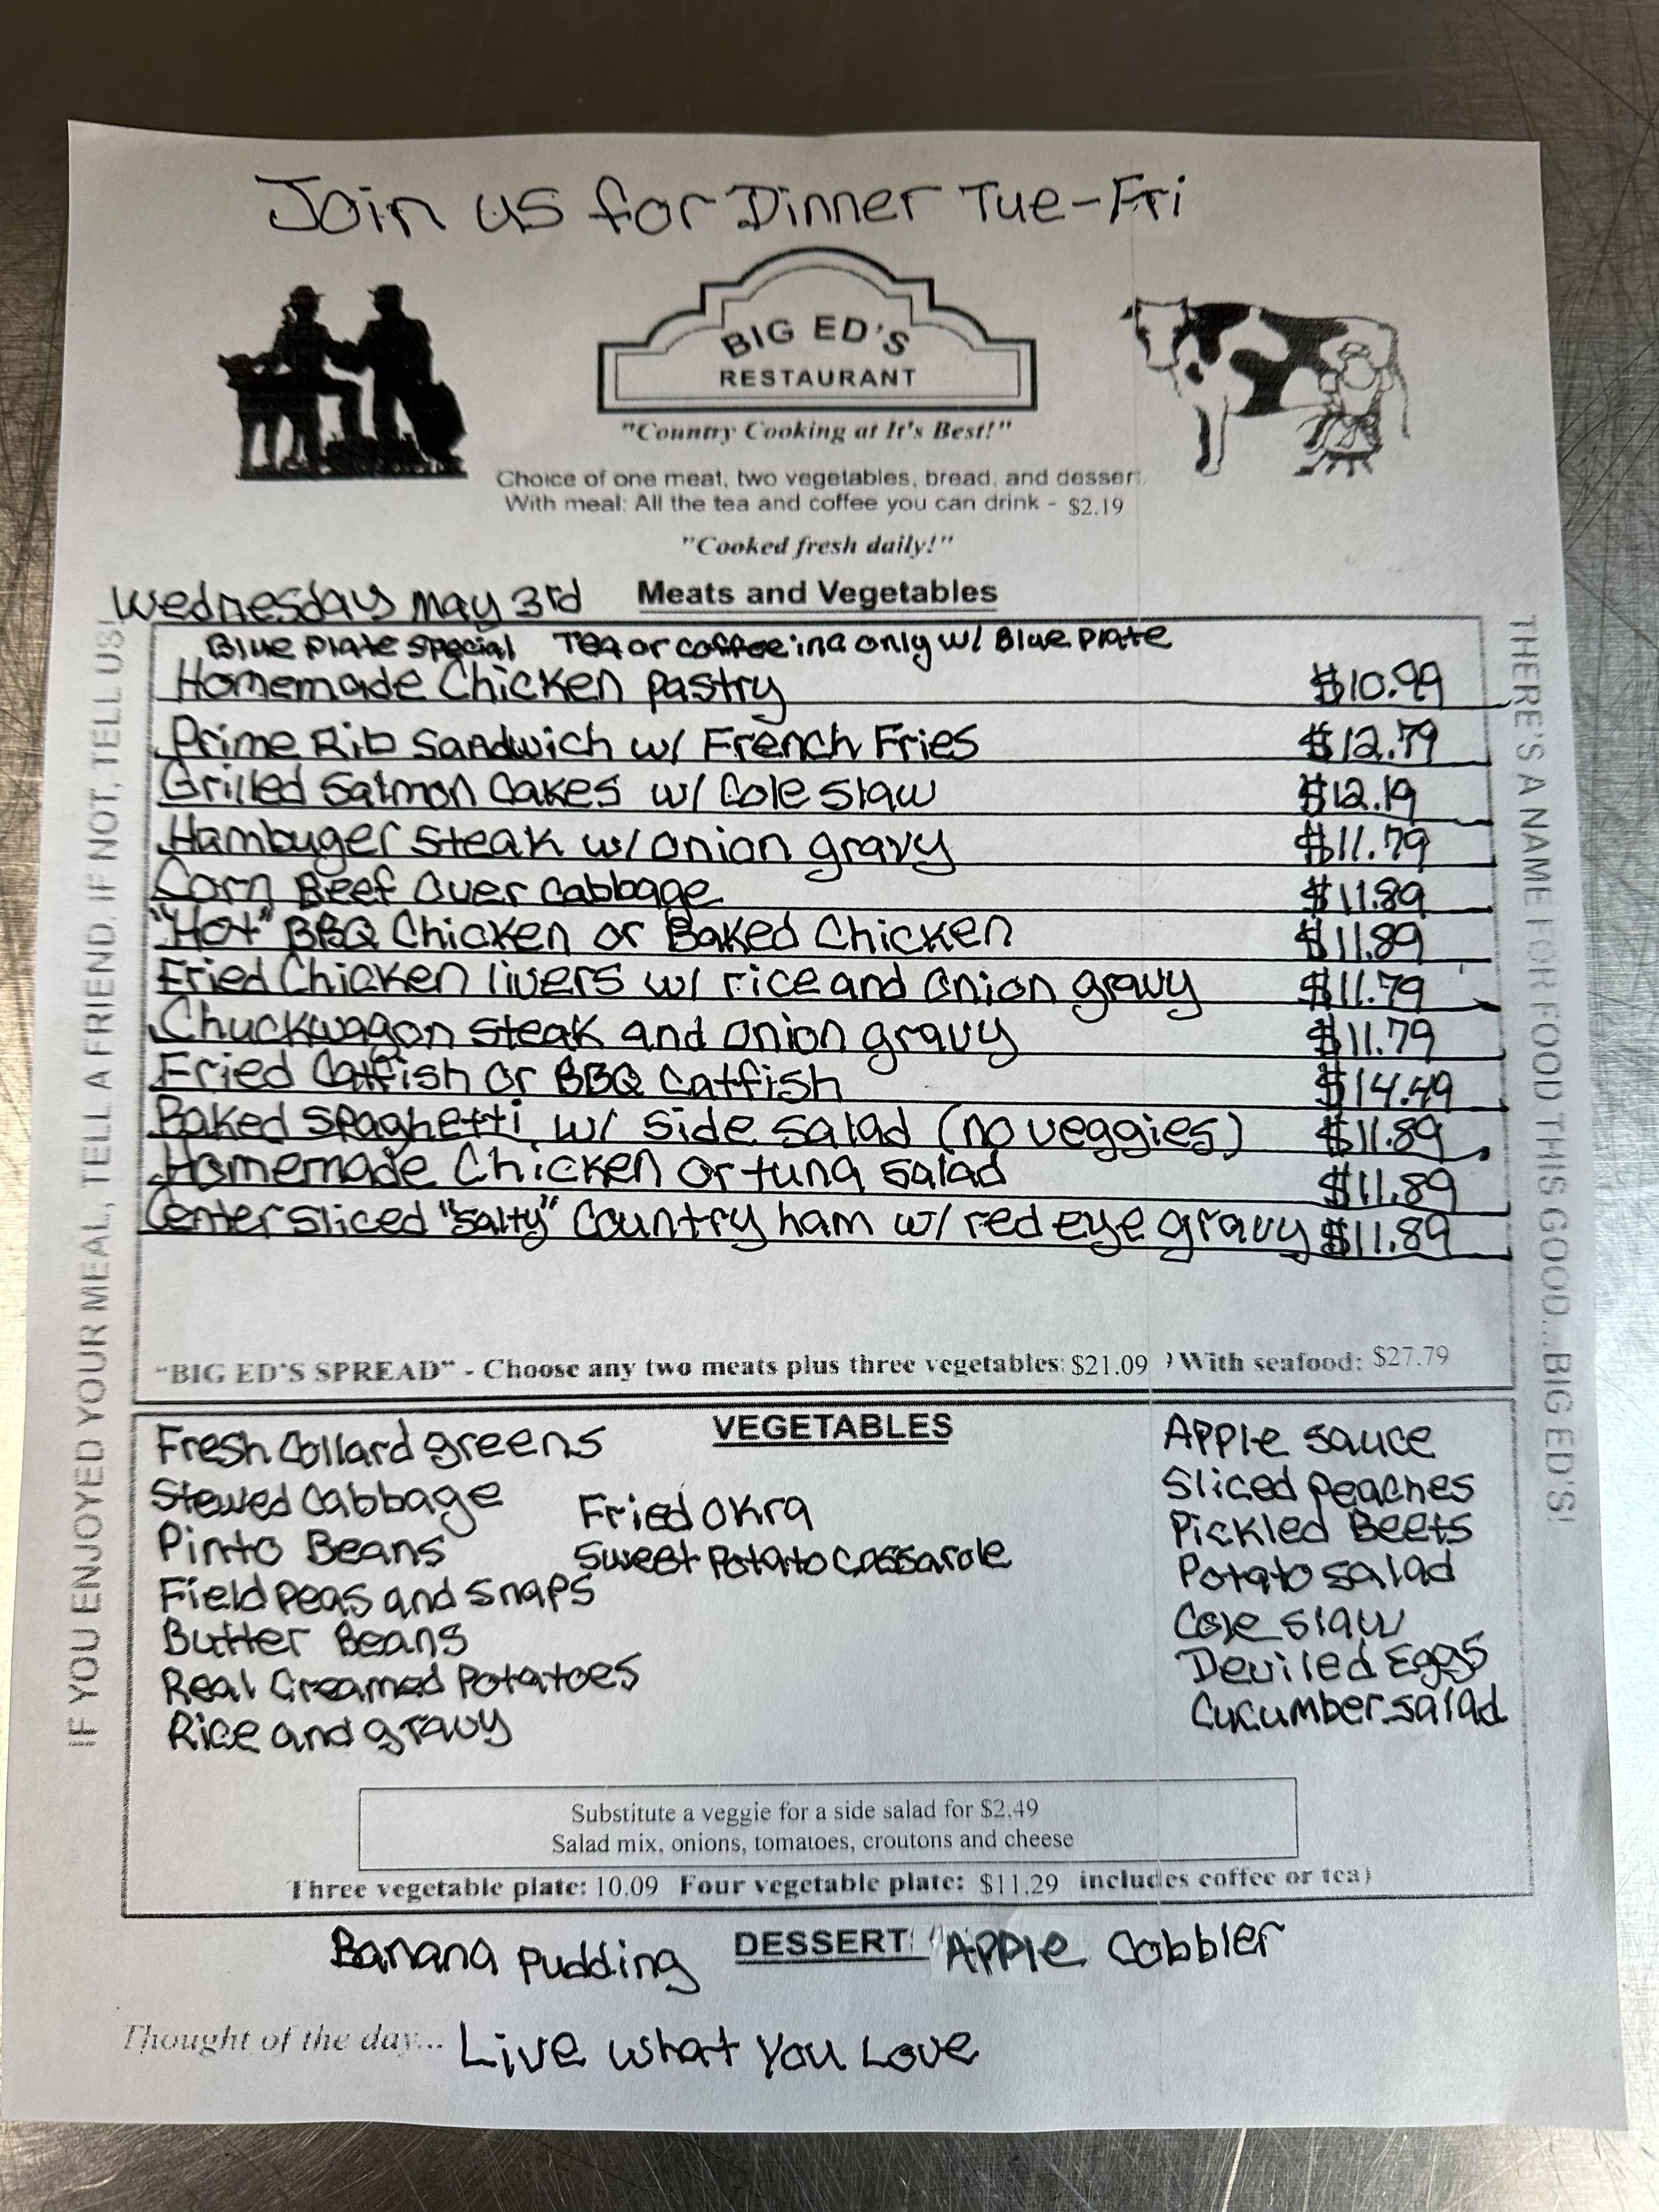 Join us for Dinner Tue-Fri
BIG ED'S
RESTAURANT
"Country Cooking at It's Best!"
Choice of one meat, two vegetables, bread, and dessert.
With meal: All the tea and coffee you can drink - $2.19
"Cooked fresh daily!"
Wednesday May 3rd Meats and Vegetables
Blue Plate Special Tea or coffee inc only w/ Blue Plate
Homemade Chicken Pastry $10.99
Prime Rib Sandwich w/ French Fries $12.79
Grilled Salmon Cakes w/ Cole slaw $12.19
Hambuger steak w/ onion gravy $11.79
Corn Beef Over Cabbage $11.89
"Hot" BBQ Chicken or Baked Chicken $11.89
Fried Chicken livers w/ rice and onion gravy $11.79
Chuckwagon steak and onion gravy $11.79
Fried Catfish or BBQ Catfish $14.49
Baked Spaghetti w/ side salad (no veggies) $11.89
Homemade Chicken or tuna salad $11.89
Center sliced "salty" Country ham w/ red eye gravy $11.89
"BIG ED'S SPREAD" - Choose any two meats plus three vegetables: $21.09 ) With seafood: $27.79
IF YOU ENJOYED YOUR MEAL, TELL A FRIEND. IF NOT, TELL US!
THERE'S A NAME FOR FOOD THIS GOOD...BIG ED'S!
VEGETABLES
Fresh Collard greens
Stewed Cabbage
Pinto Beans
Field Peas and Snaps
Butter Beans
Real Creamed Potatoes
Rice and gravy
Fried Okra
Sweet Potato Cassarole
Apple sauce
Sliced Peaches
Pickled Beets
Potato salad
Cole slaw
Deviled Eggs
Cucumber salad
Substitute a veggie for a side salad for $2.49
Salad mix, onions, tomatoes, croutons and cheese
Three vegetable plate: 10.09 Four vegetable plate: $11.29 includes coffee or tea)
Banana Pudding DESSERT Apple Cobbler
Thought of the day... Live what You Love